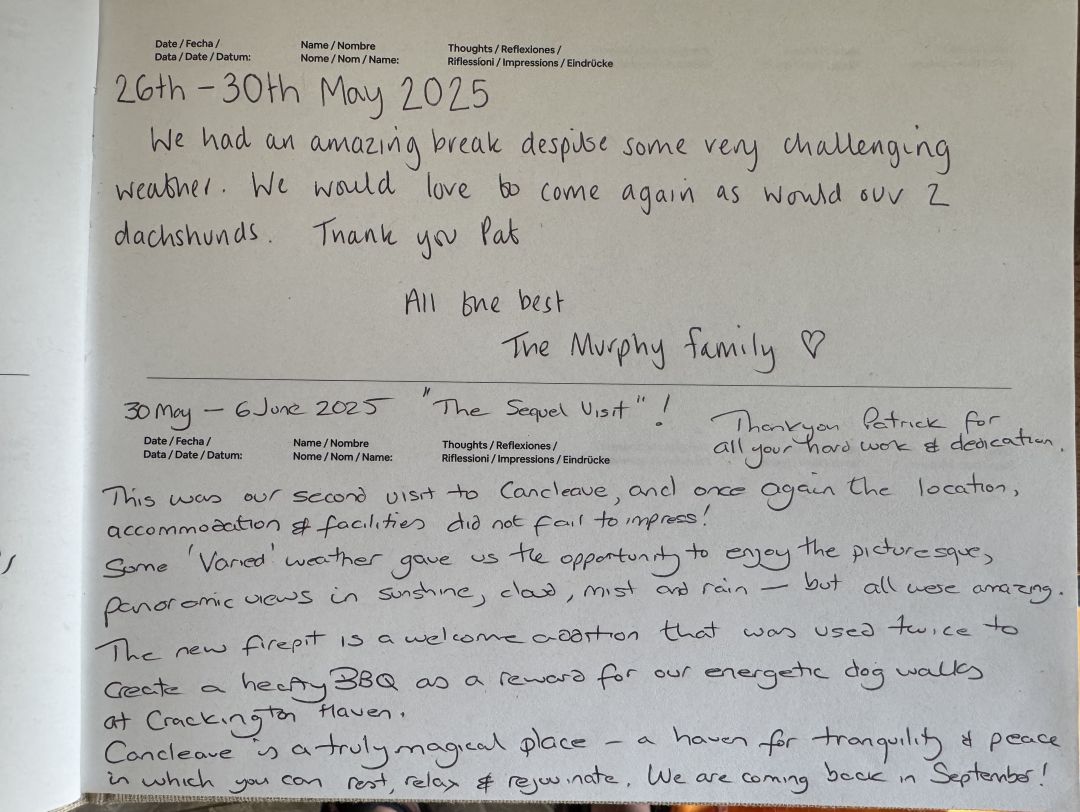 Date / Fecha /
Data / Date / Datum:
Name / Nombre
Nome / Nom / Name:
Thoughts / Reflexiones /
Riflessioni / Impressions / Eindrücke
26th – 30th May 2025
We had an amazing break despite some very challenging
weather. We would love to come again as would our 2
dachshunds. Thank you Pat
All the best
The Murphy family ♡
30 May – 6 June 2025 "The Sequel Visit"!
Thankyou Patrick for
all your hard work & dedication.
Date / Fecha /
Data / Date / Datum:
Name / Nombre
Nome / Nom / Name:
Thoughts / Reflexiones /
Riflessioni / Impressions / Eindrücke
This was our second visit to Cancleave, and once again the location,
accommodation & facilities did not fail to impress!
Some 'Varied' weather gave us the opportunity to enjoy the picturesque,
panoramic views in sunshine, cloud, mist and rain – but all were amazing.
The new firepit is a welcome addition that was used twice to
create a hearty BBQ as a reward for our energetic dog walks
at Crackington Haven.
Cancleave is a truly magical place – a haven for tranquility & peace
in which you can rest, relax & rejuvinate. We are coming back in September!